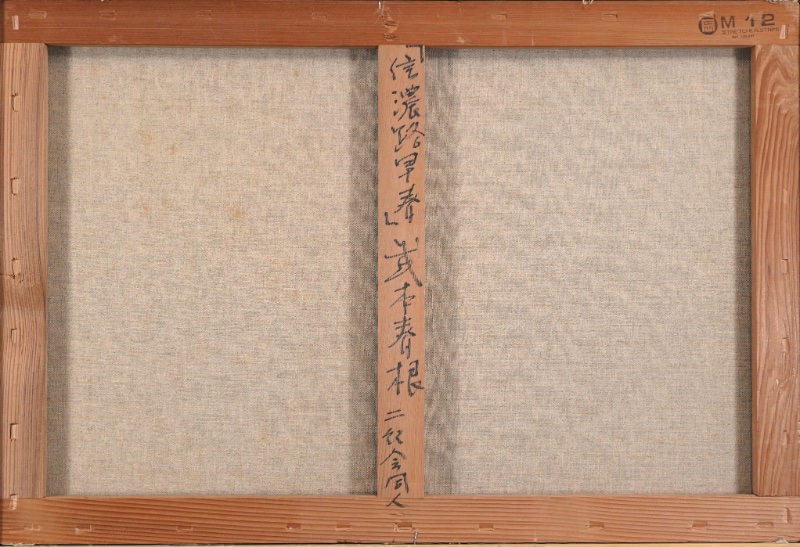 「信濃路早春」武本春根 二紀会同人
M 12